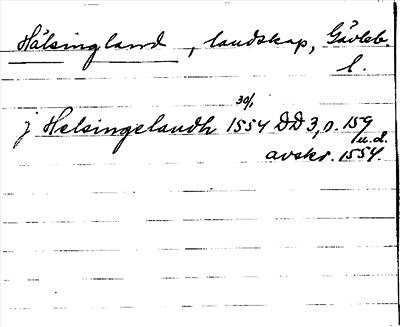 Hälsingland, landskap, Gävleb.
l.
j Helsingelandh 30/1 1554 DD3, n. 159
u.d.
avskr. 1554.